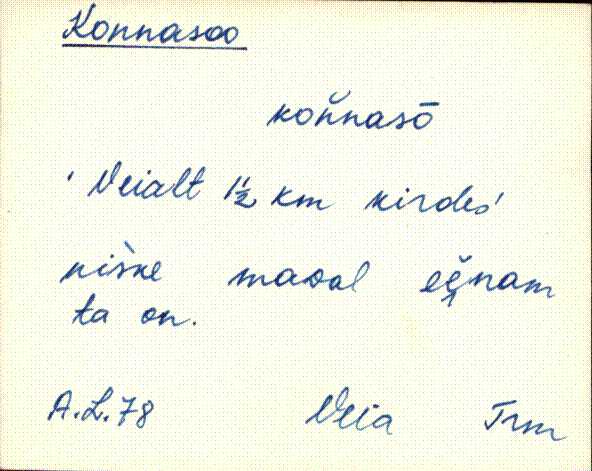 Konnasoo
koňnasō
' Veialt 1½ km kirdes'
niske madal
ta on.
A.L.78 Veia Trm